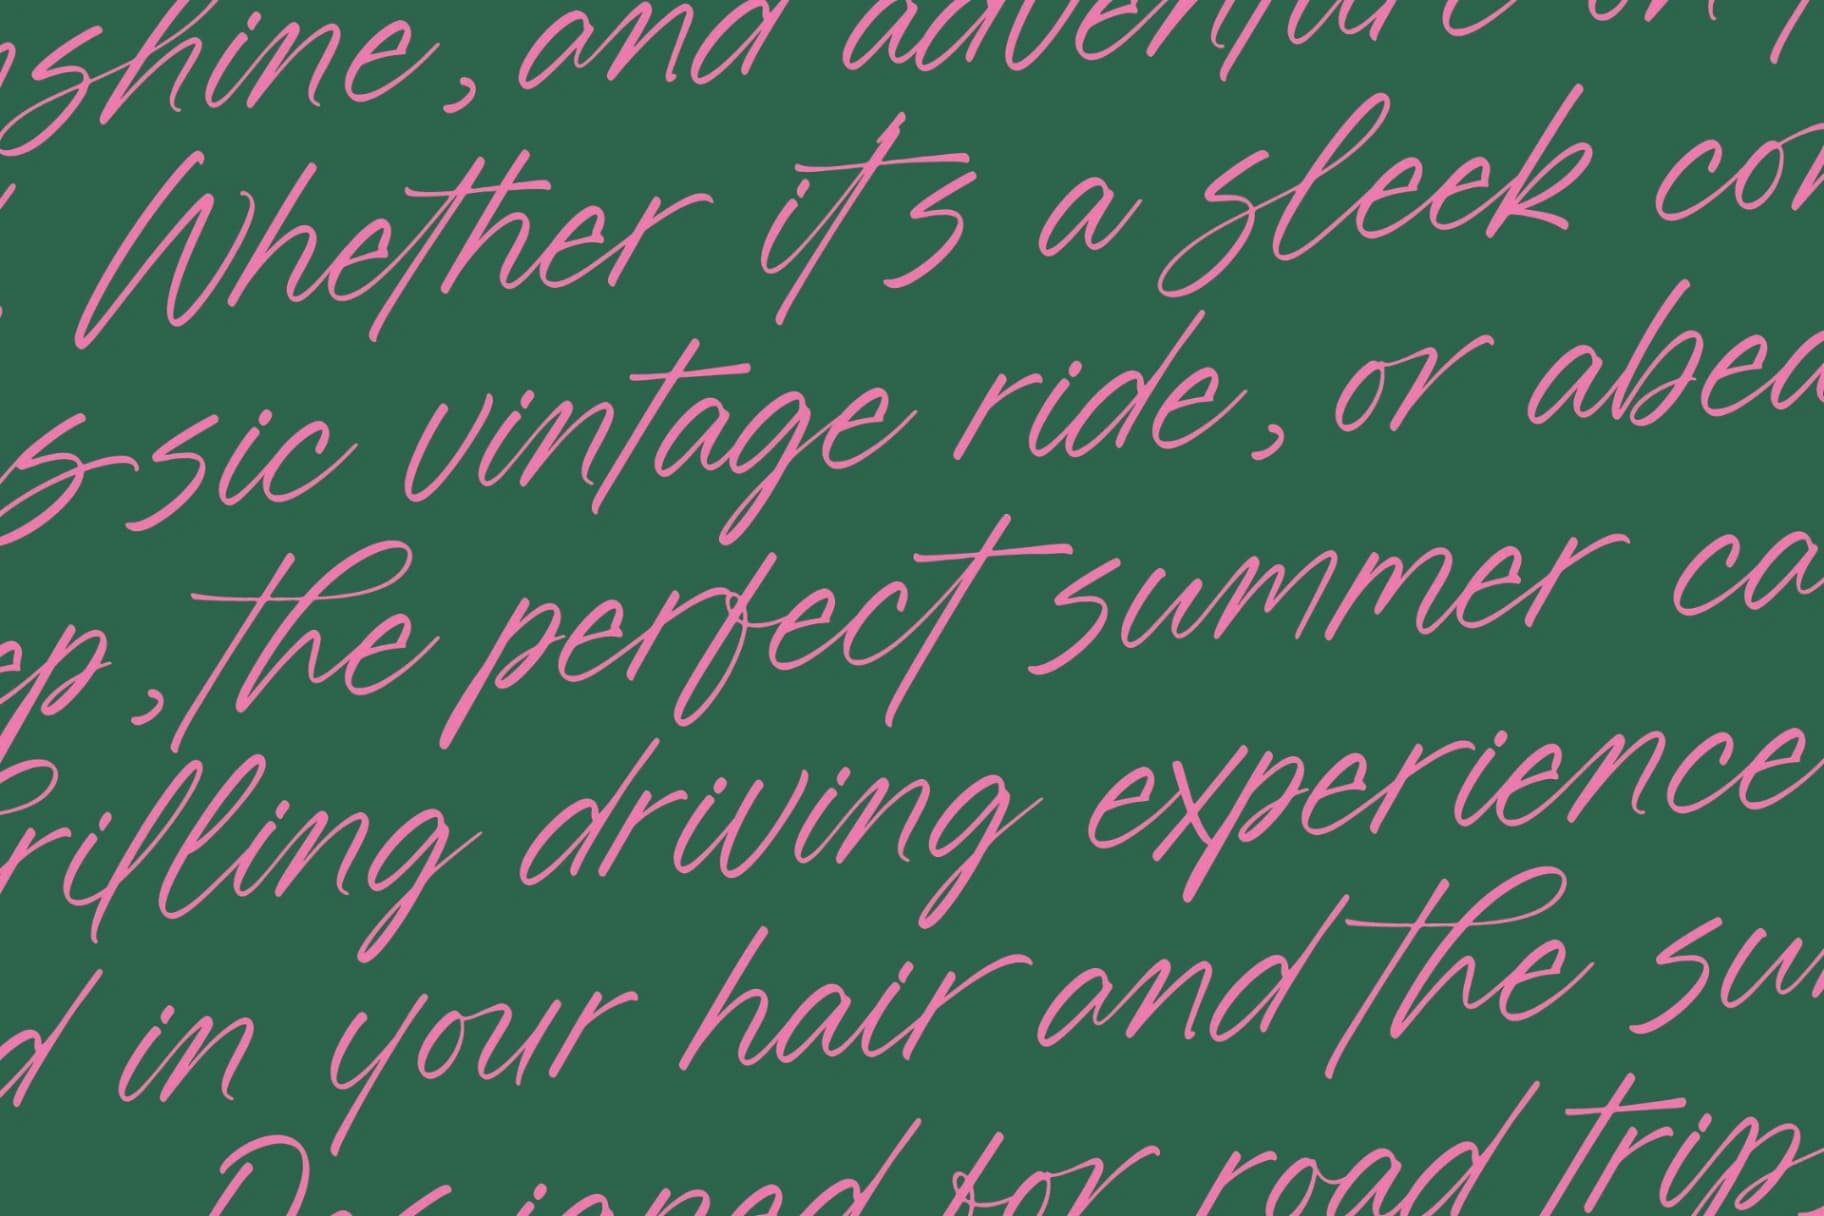 nshine, and adventure on
Whether it's a sleek con
ssic vintage ride, or a bea
ep, the perfect summer ca
rilling driving experience
d in your hair and the sun
Designed for road trips